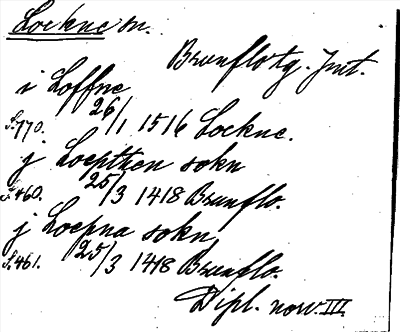 Lockne sn.
Brunflo tg. Jmt.
i Loffne
S. 770. 26/1 1516 Lockne.
j Loepthen sokn
S. 460. 25/3 1418 Brunflo.
j Loepna sokn
S. 461. 25/3 1418 Brunflo.
Dipl. norv. III.